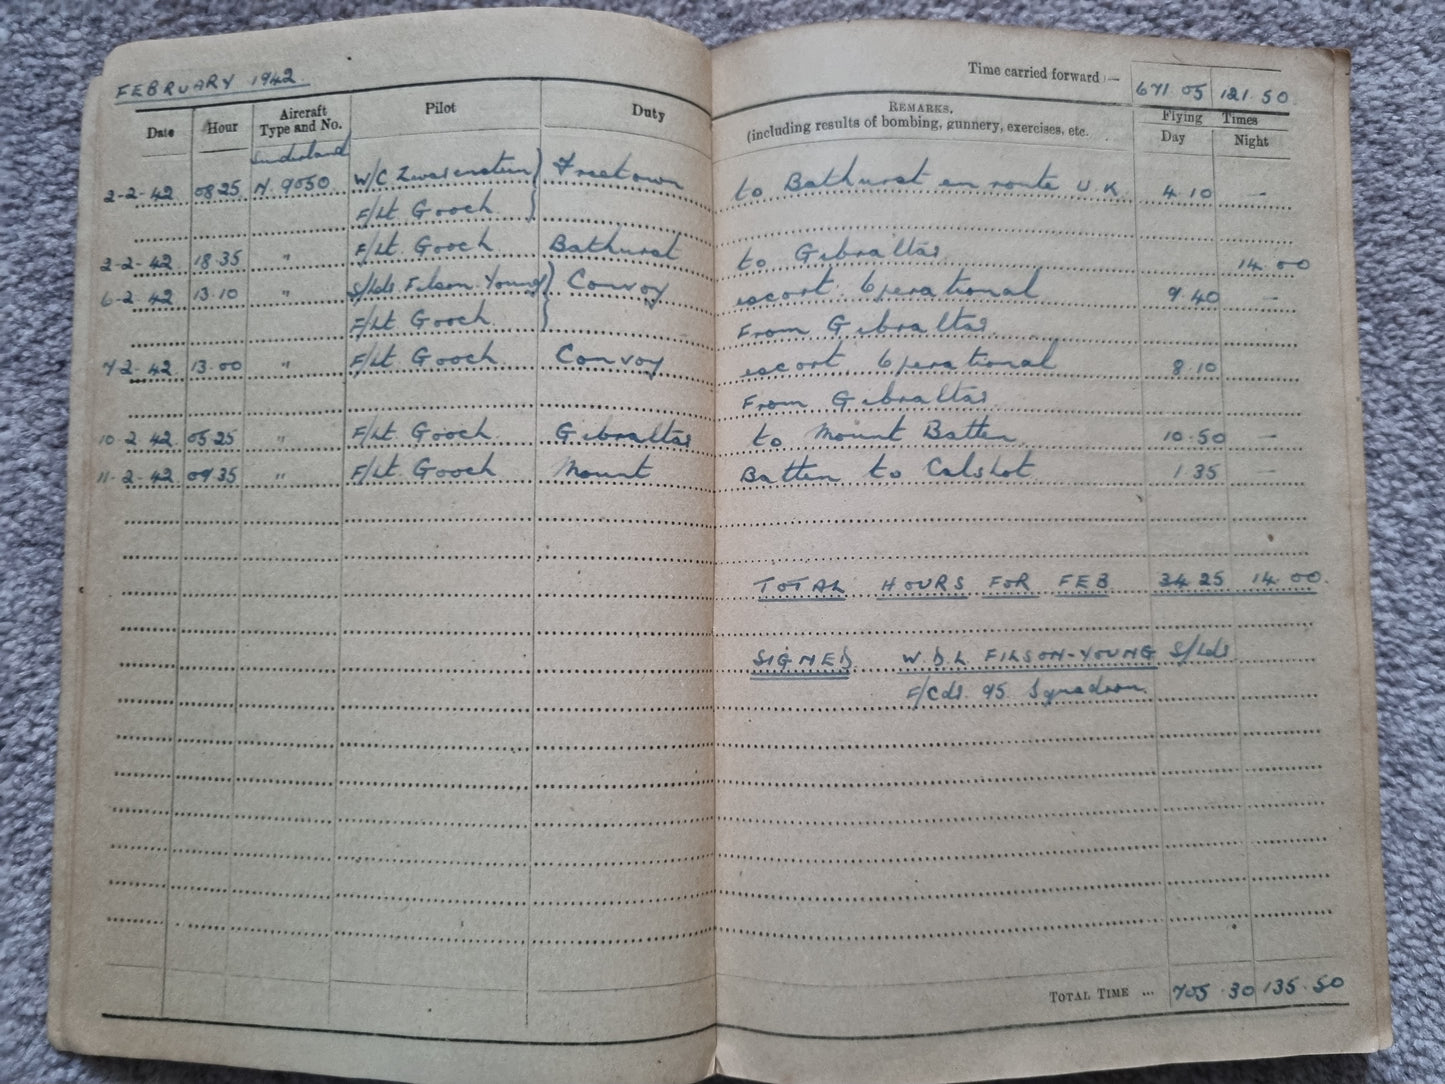 FEBRUARY 1942
Time carried forward :— 671.05 121.50
Date Hour Aircraft Type and No. Pilot Duty REMARKS. (including results of bombing, gunnery, exercises, etc. Flying Times Day Night
Sunderland
2-2-42 0825 N.9050 W/C Freetown to Bathurst en route U.K. 4.10 —
F/Lt Gooch
2-2-42 18.35 " F/Lt. Gooch Bathurst to Gibraltar 14.00
6-2-42 13.10 " S/Ldr. Filson-Young Convoy escort. Operational 9.40 —
F/Lt Gooch From Gibraltar.
7-2-42 13.00 " F/Lt Gooch Convoy escort. Operational 8.10
From Gibraltar
10-2-42 0525 " F/Lt Gooch Gibraltar to Mount Batten 10.50 —
11-2-42 09.35 " F/Lt. Gooch Mount Batten to Calshot 1.35 —
TOTAL HOURS FOR FEB 34.25 14.00.
SIGNED W.D.L FILSON-YOUNG S/Ldr
F/Cdr. 95 Squadron.
TOTAL TIME ... 705.30 135.50